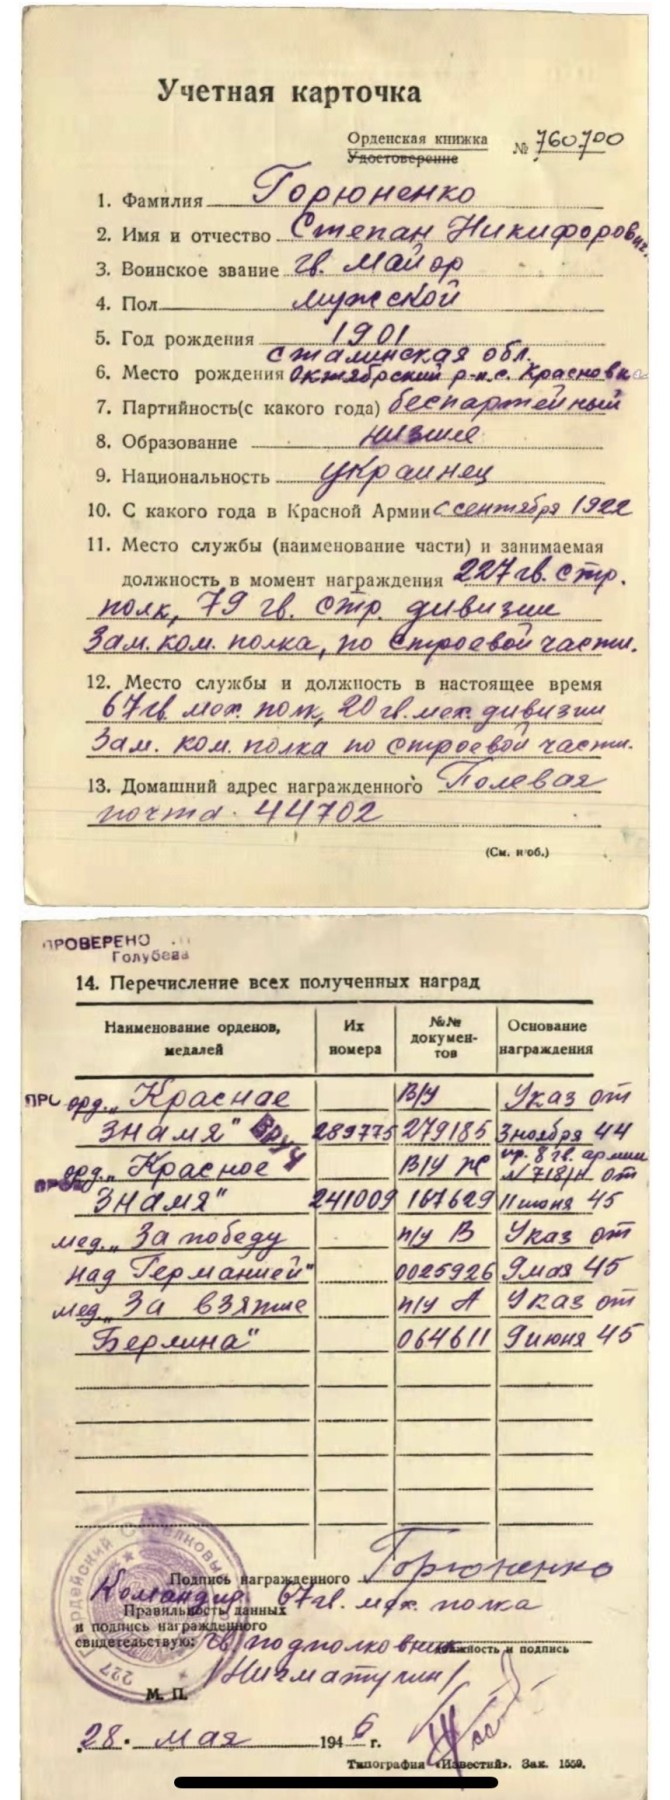 Учетная карточка
Орденская книжка
Удостоверение
№ 760700
1. Фамилия Горюненко
2. Имя и отчество Степан Никифорович.
3. Воинское звание гв. майор
4. Пол мужской
5. Год рождения 1901
Сталинская обл.
6. Место рождения Октябрский р-н.с. Красновка
7. Партийность(с какого года) беспартейный
8. Образование низшее
9. Национальность украинец
10. С какого года в Красной Армии с сентября 1922
11. Место службы (наименование части) и занимаемая
должность в момент награждения 227 гв. стр.
полк, 79 гв. стр. дивизии
Зам. ком. полка, по строевой части.
12. Место службы и должность в настоящее время
67 гв. мех. полк, 20 гв. мех. дивизии
Зам. ком. полка по строевой части.
13. Домашний адрес награжденного Полевая
почта. 44702
(См. н/об.)
ПРОВЕРЕНО
Голубева
14. Перечисление всех полученных наград
Наименование орденов, медалей
Их номера
№№ докумен-тов
Основание награждения
орд. „Красное В/У Указ от
Знамя" ВРУЧ 289775 279185 3 ноября 44
орд. „Красное В/У Ж пр. 8 гв. армии
№ 718/н от
Знамя" 241009 167629 11 июня 45
мед. „За победу п/у В Указ от
над Германией" 0025926 9 мая 45
мед. „За взятие п/у А Указ от
Берлина" 064611 9 июня 45
Подпись награжденного Горюненко
Командир 67 гв. мех. полка
Правильность данных
и подпись награжденного
свидетельствую: гв. подполковник
должность и подпись
/Нигматулин/
227 Гвардейский Стрелковый
М. П.
28. мая 1946 г.
Типография «Известий». Зак. 1559.